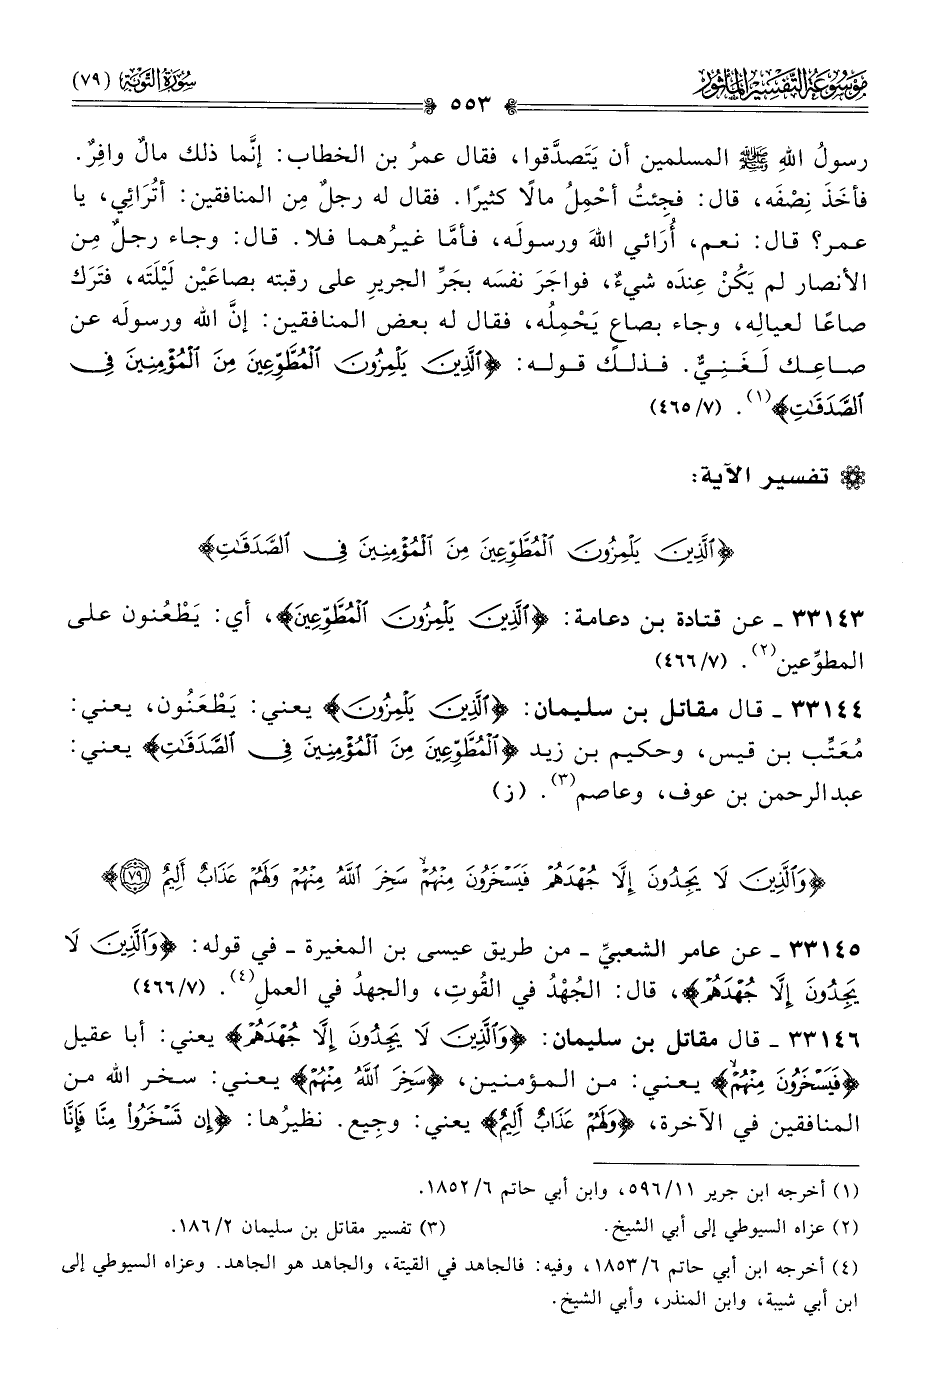 موسوعة التفسير المأثور
سورة التوبة (٧٩)
٥٥٣
رسولُ اللهِ ﷺ المسلمين أن يَتَصدَّقوا، فقال عمرُ بن الخطاب: إنَّما ذلك مالٌ وافِرٌ.
فأخَذَ نِصْفَه، قال: فجِئتُ أحْمِلُ مالًا كثيرًا. فقال له رجلٌ مِن المنافقين: أتُرائِي، يا
عمر؟ قال: نعم، أُرَائي اللهَ ورسولَه، فأمَّا غيرُهما فلا. قال: وجاء رجلٌ مِن
الأنصار لم يَكُنْ عِندَه شيءٌ، فواجَرَ نفسَه بجَرِّ الجريرِ على رقبته بصاعَيْن لَيْلَتَه، فتَرَك
صاعًا لعيالِه، وجاء بصاعٍ يَحْمِلُه، فقال له بعض المنافقين: إنَّ الله ورسولَه عن
صاعِك لَغَنِيٌّ. فذلك قوله: ﴿ٱلَّذِينَ يَلْمِزُونَ ٱلْمُطَّوِّعِينَ مِنَ ٱلْمُؤْمِنِينَ فِى
ٱلصَّدَقَٰتِ﴾(١). (٤٦٥/٧)
تفسير الآية:
﴿ٱلَّذِينَ يَلْمِزُونَ ٱلْمُطَّوِّعِينَ مِنَ ٱلْمُؤْمِنِينَ فِى ٱلصَّدَقَٰتِ﴾
٣٣١٤٣ ـ عن قتادة بن دعامة: ﴿ٱلَّذِينَ يَلْمِزُونَ ٱلْمُطَّوِّعِينَ﴾، أي: يَطْعُنون على
المطوِّعين(٢). (٤٦٦/٧)
٣٣١٤٤ ـ قال مقاتل بن سليمان: ﴿ٱلَّذِينَ يَلْمِزُونَ﴾ يعني: يَطْعَنُون، يعني:
مُعَتِّب بن قيس، وحكيم بن زيد ﴿ٱلْمُطَّوِّعِينَ مِنَ ٱلْمُؤْمِنِينَ فِى ٱلصَّدَقَٰتِ﴾ يعني:
عبدالرحمن بن عوف، وعاصم(٣). (ز)
﴿وَٱلَّذِينَ لَا يَجِدُونَ إِلَّا جُهْدَهُمْ فَيَسْخَرُونَ مِنْهُمْ ۙ سَخِرَ ٱللَّهُ مِنْهُمْ وَلَهُمْ عَذَابٌ أَلِيمٌ ٧٩﴾
٣٣١٤٥ ـ عن عامر الشعبيِّ ـ من طريق عيسى بن المغيرة ـ في قوله: ﴿وَٱلَّذِينَ لَا
يَجِدُونَ إِلَّا جُهْدَهُمْ﴾، قال: الجُهْدُ في القُوتِ، والجهدُ في العملِ(٤). (٤٦٦/٧)
٣٣١٤٦ ـ قال مقاتل بن سليمان: ﴿وَٱلَّذِينَ لَا يَجِدُونَ إِلَّا جُهْدَهُمْ﴾ يعني: أبا عقيل
﴿فَيَسْخَرُونَ مِنْهُمْ ۙ﴾ يعني: من المؤمنين، ﴿سَخِرَ ٱللَّهُ مِنْهُمْ﴾ يعني: سخر الله من
المنافقين في الآخرة، ﴿وَلَهُمْ عَذَابٌ أَلِيمٌ﴾ يعني: وجِيع. نظيرُها: ﴿إِن تَسْخَرُوا۟ مِنَّا فَإِنَّا
(١) أخرجه ابن جرير ١١/ ٥٩٦، وابن أبي حاتم ٦/ ١٨٥٢.
(٢) عزاه السيوطي إلى أبي الشيخ. (٣) تفسير مقاتل بن سليمان ٢/ ١٨٦.
(٤) أخرجه ابن أبي حاتم ٦/ ١٨٥٣، وفيه: فالجاهد في القيتة، والجاهد هو الجاهد. وعزاه السيوطي إلى
ابن أبي شيبة، وابن المنذر، وأبي الشيخ.